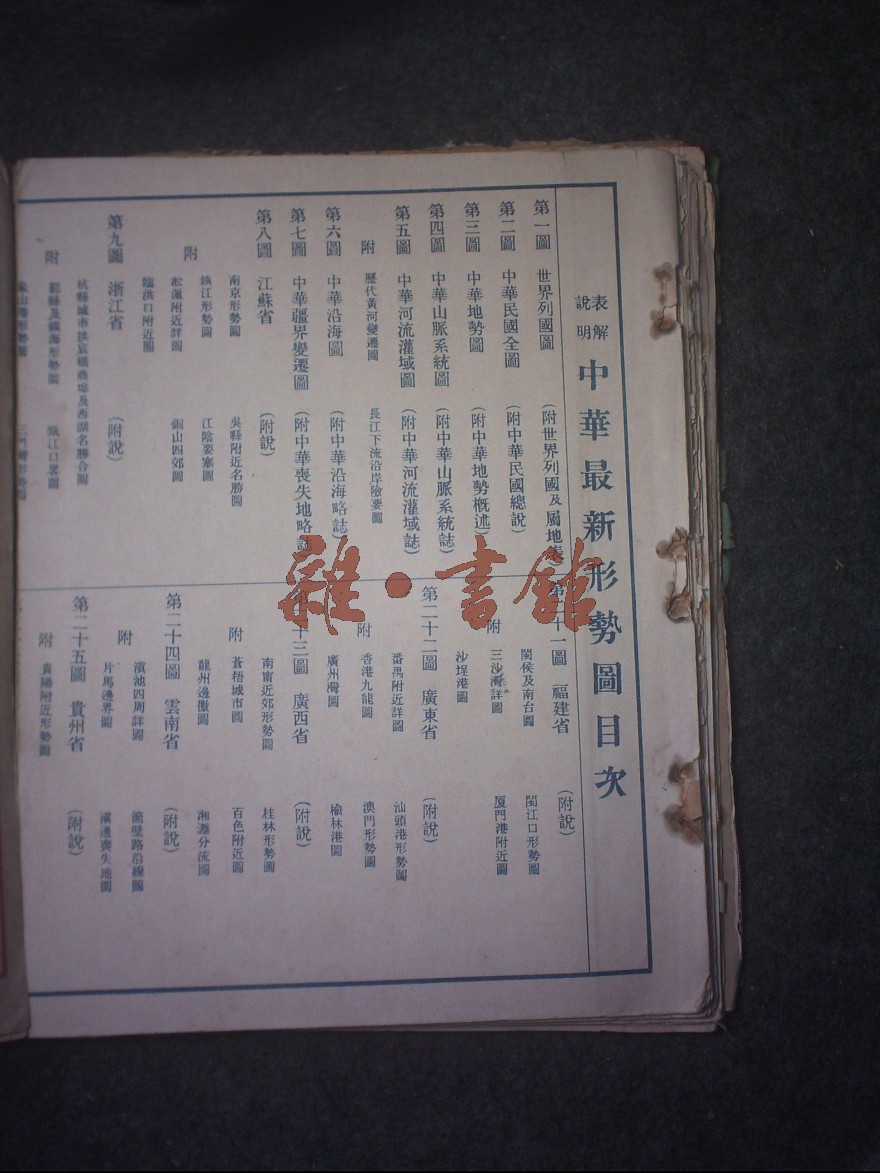 表解
說明
中華最新形勢圖目次
第一圖 世界列國圖 (附世界列國及屬地表)
第二圖 中華民國全圖 (附中華民國總說)
第三圖 中華地勢圖 (附中華地勢概述)
第四圖 中華山脈系統圖 (附中華山脈系統誌)
第五圖 中華河流灌域圖 (附中華河流灌域誌)
附 歷代黃河變遷圖 長江下流沿岸險要圖
第六圖 中華沿海圖 (附中華沿海略誌)
第七圖 中華疆界變遷圖 (附中華喪失地略誌)
第八圖 江蘇省 (附說)
南京形勢圖 吳縣附近名勝圖
鎮江形勢圖 江陰要塞圖
附
淞滬附近詳圖 銅山四郊圖
臨洪口附近圖
第九圖 浙江省 (附說)
杭縣城市拱宸橋商埠及西湖名勝合圖
附
鄞縣及鎮海形勢圖 甌江口畧圖
象山港形勢圖 三門灣形勢圖
第二十一圖 福建省 (附說)
閩侯及南台圖 閩江口形勢圖
附
三沙灣詳圖 厦門港附近圖
沙埕港圖
第二十二圖 廣東省 (附說)
番禺附近詳圖 汕頭港形勢圖
附
香港九龍圖 澳門形勢圖
廣州灣圖 榆林港圖
十三圖 廣西省 (附說)
南甯近郊形勢圖 桂林形勢圖
附
蒼梧城市圖 百色附近圖
龍州邊徼圖 湘灕分流圖
第二十四圖 雲南省 (附說)
滇池四周詳圖 箇碧路沿線圖
附
片馬邊界圖 滇邊喪失地圖
第二十五圖 貴州省 (附說)
附 貴陽附近形勢圖
雜·書館